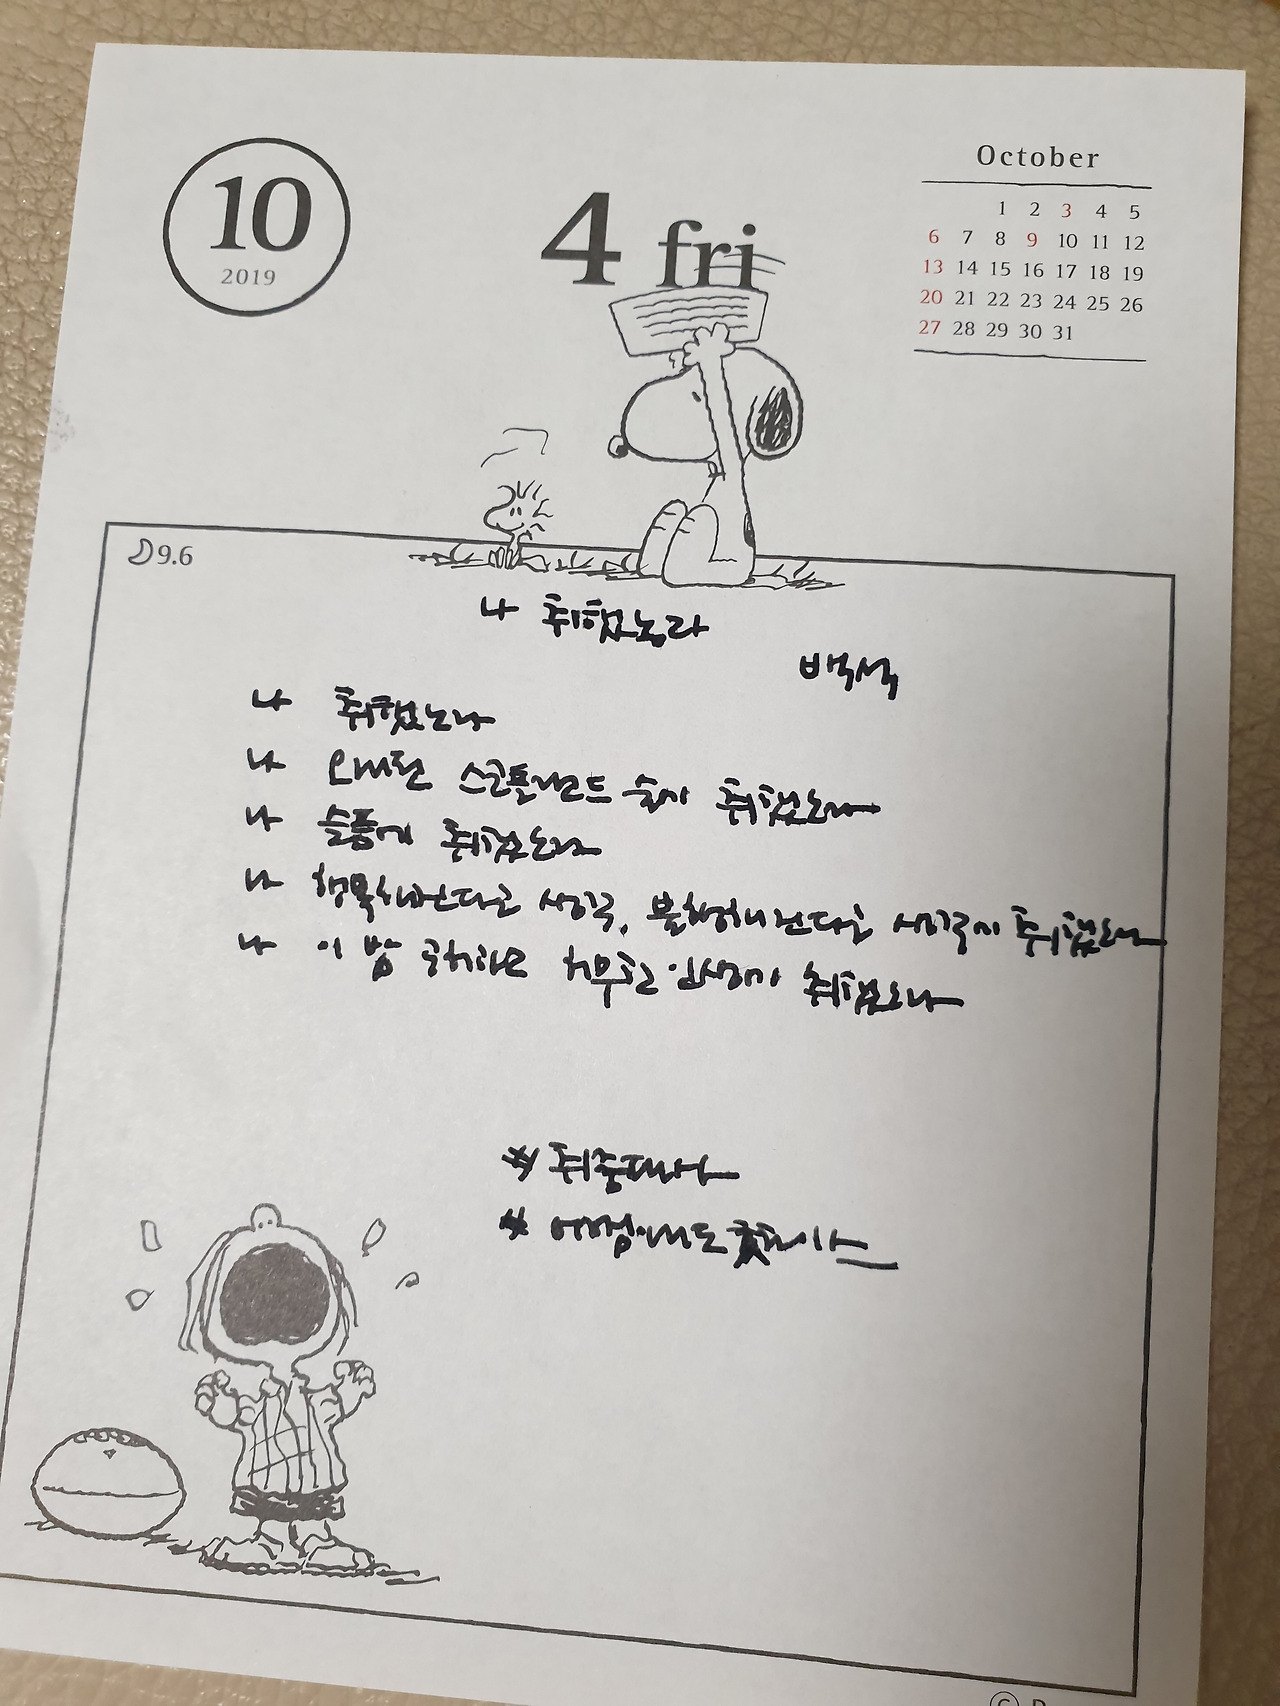 10
2019
4 fri
October
1 2 3 4 5
6 7 8 9 10 11 12
13 14 15 16 17 18 19
20 21 22 23 24 25 26
27 28 29 30 31
9.6
나 취했노라
백석
나 취했노라
나 오래된 스코틀랜드 술에 취했노라
나 슬픔에 취했노라
나 행복해진다고 생각, 불행해진다고 생각에 취했노라
나 이 밤 공허하고 허무한 인생에 취했노라
# 취중대사
#
©